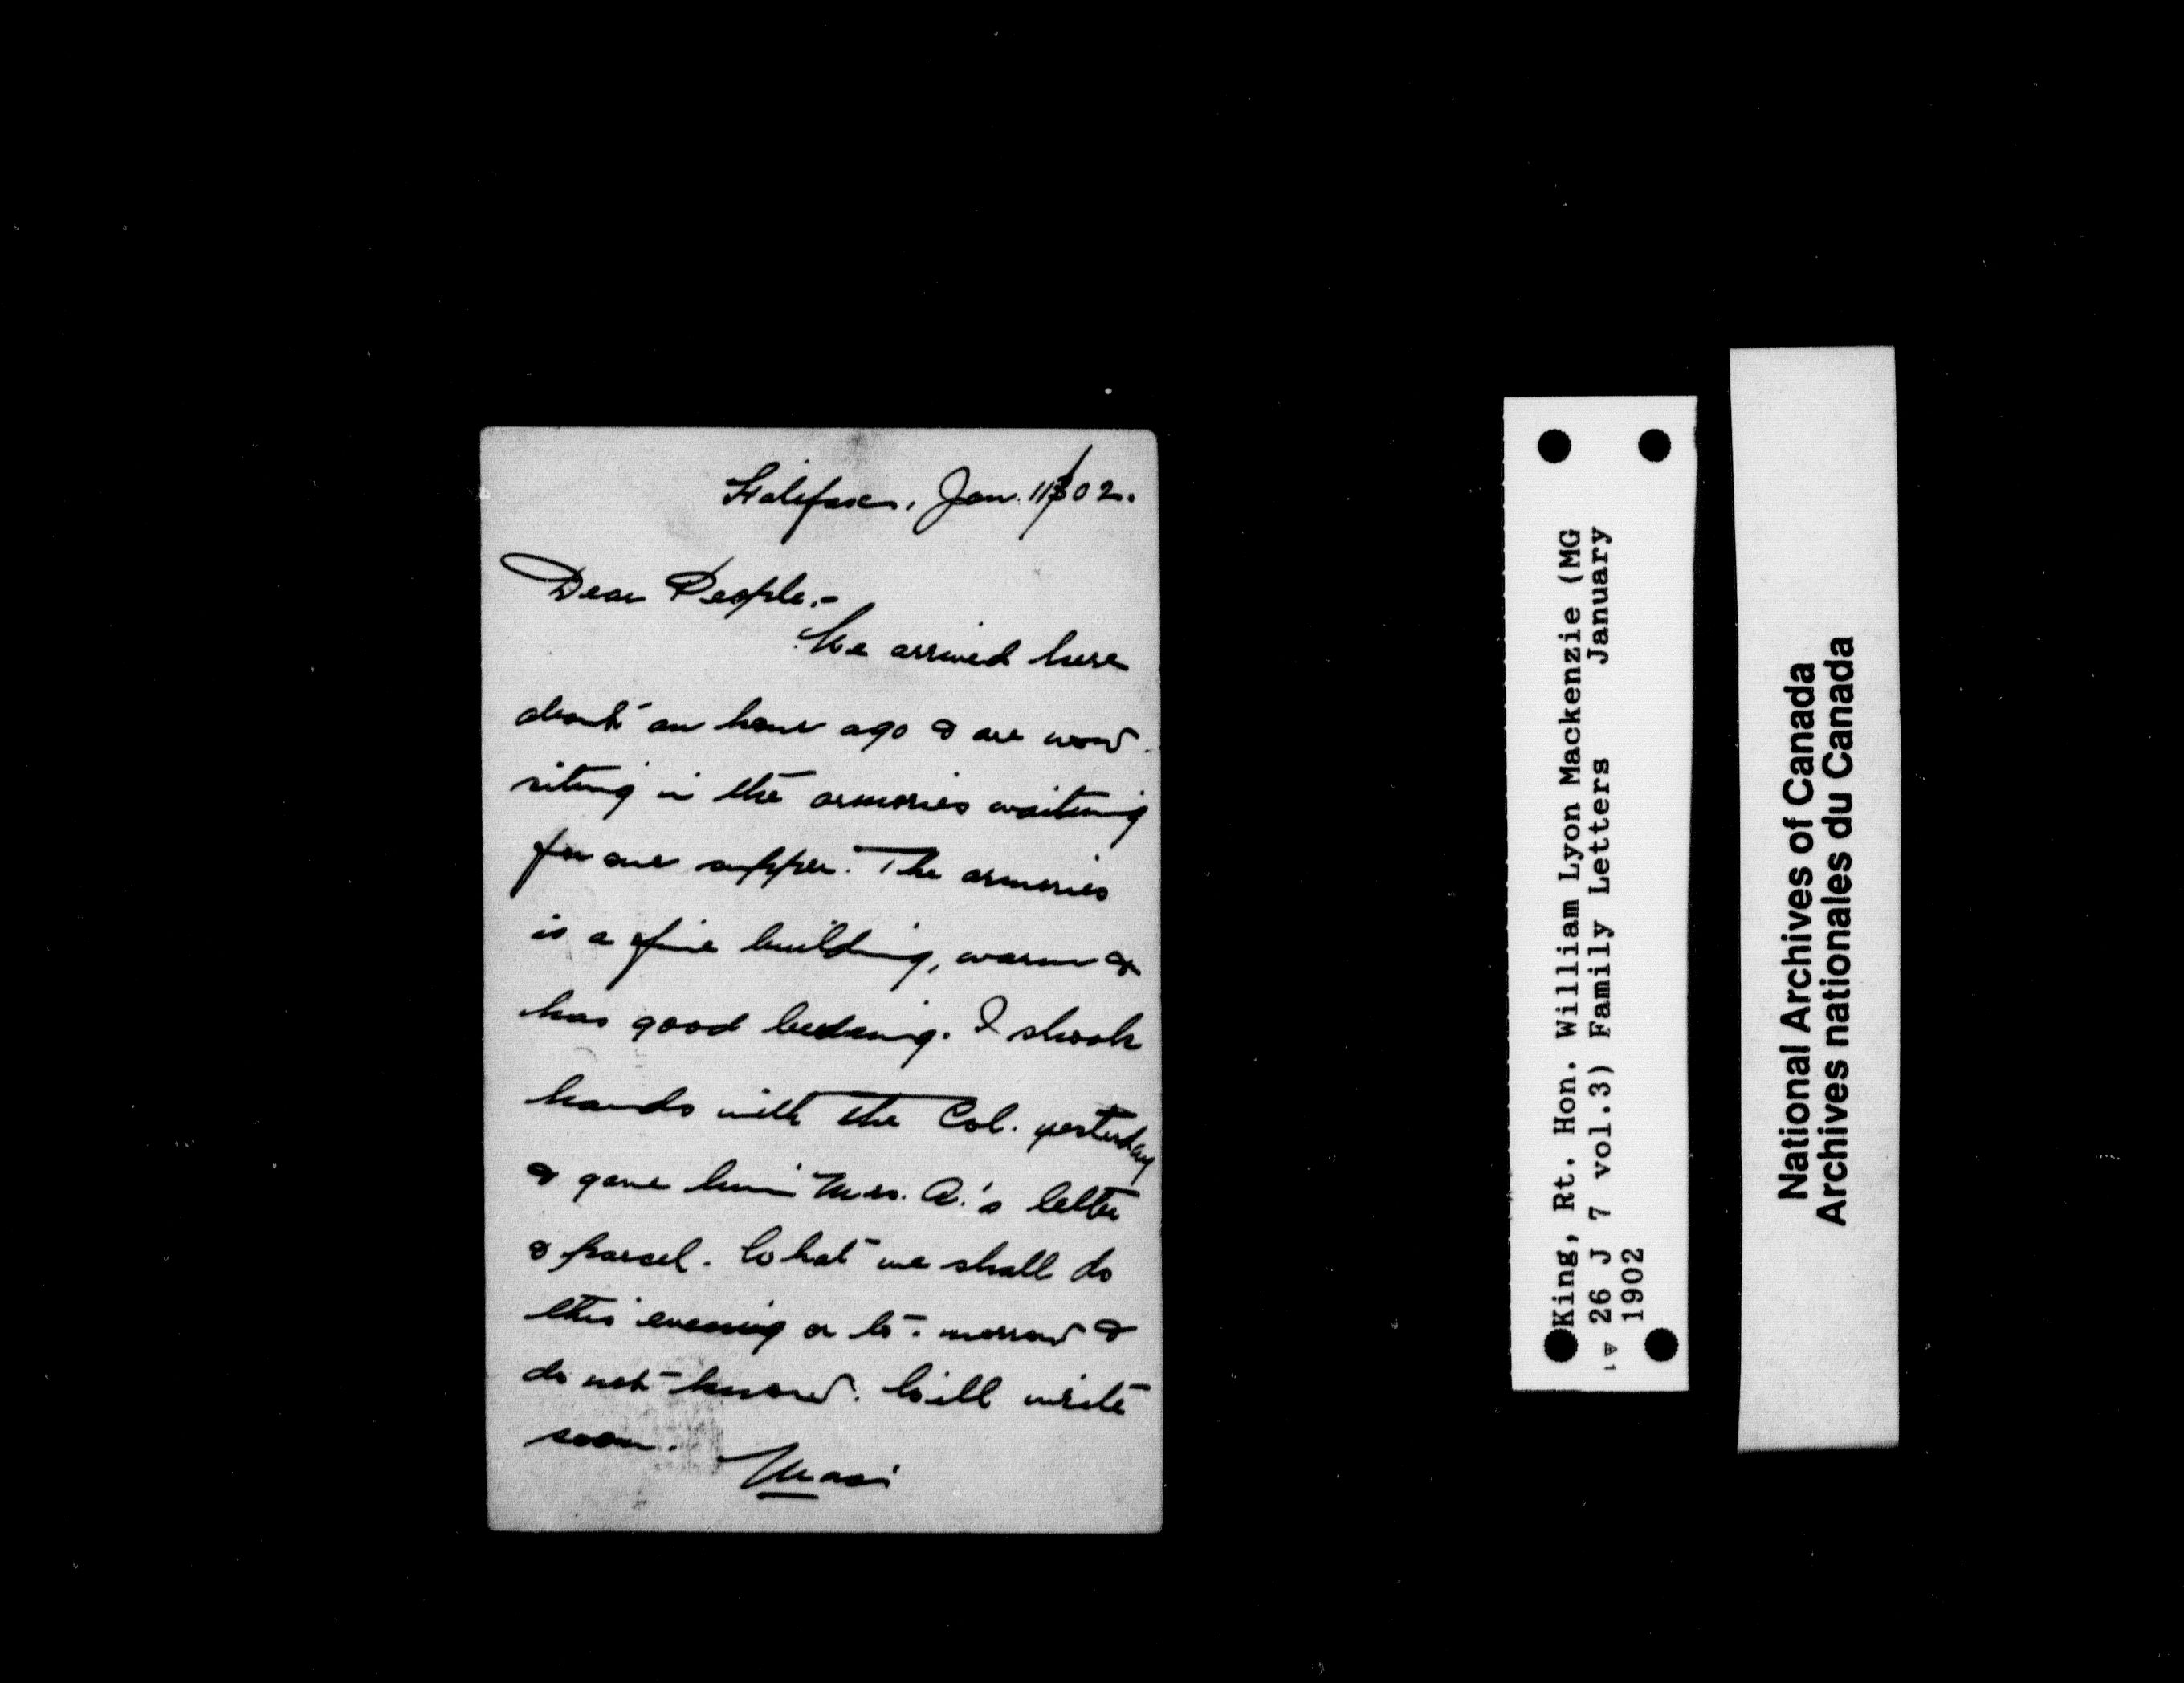 Halifax, Jan. 11/02.
Dear People,-
We arrived here
about an hour ago & are now
siting in the armories waiting
for our supper. The armories
is a fine building, warm &
has good bedding. I shook
hands with the Col. yesterday
& gave him Mrs. A.'s letter
& parcel. What we shall do
this evening or to-morrow I
do not know. Will write
soon.
King, Rt. Hon. William Lyon Mackenzie (MG
26 J 7 vol.3) Family Letters January
1902
National Archives of Canada
Archives nationales du Canada